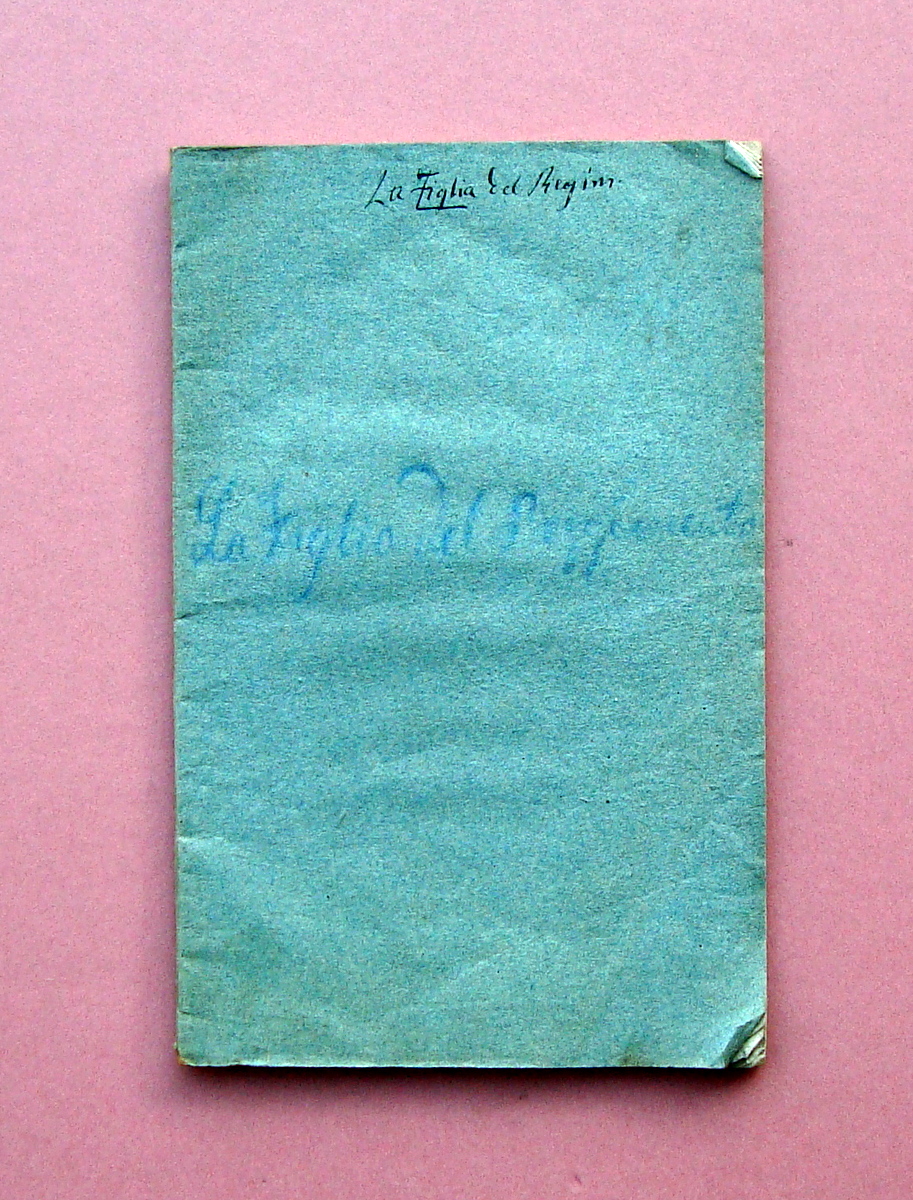 La Figlia del Regim.
La Figlia del Reggimento